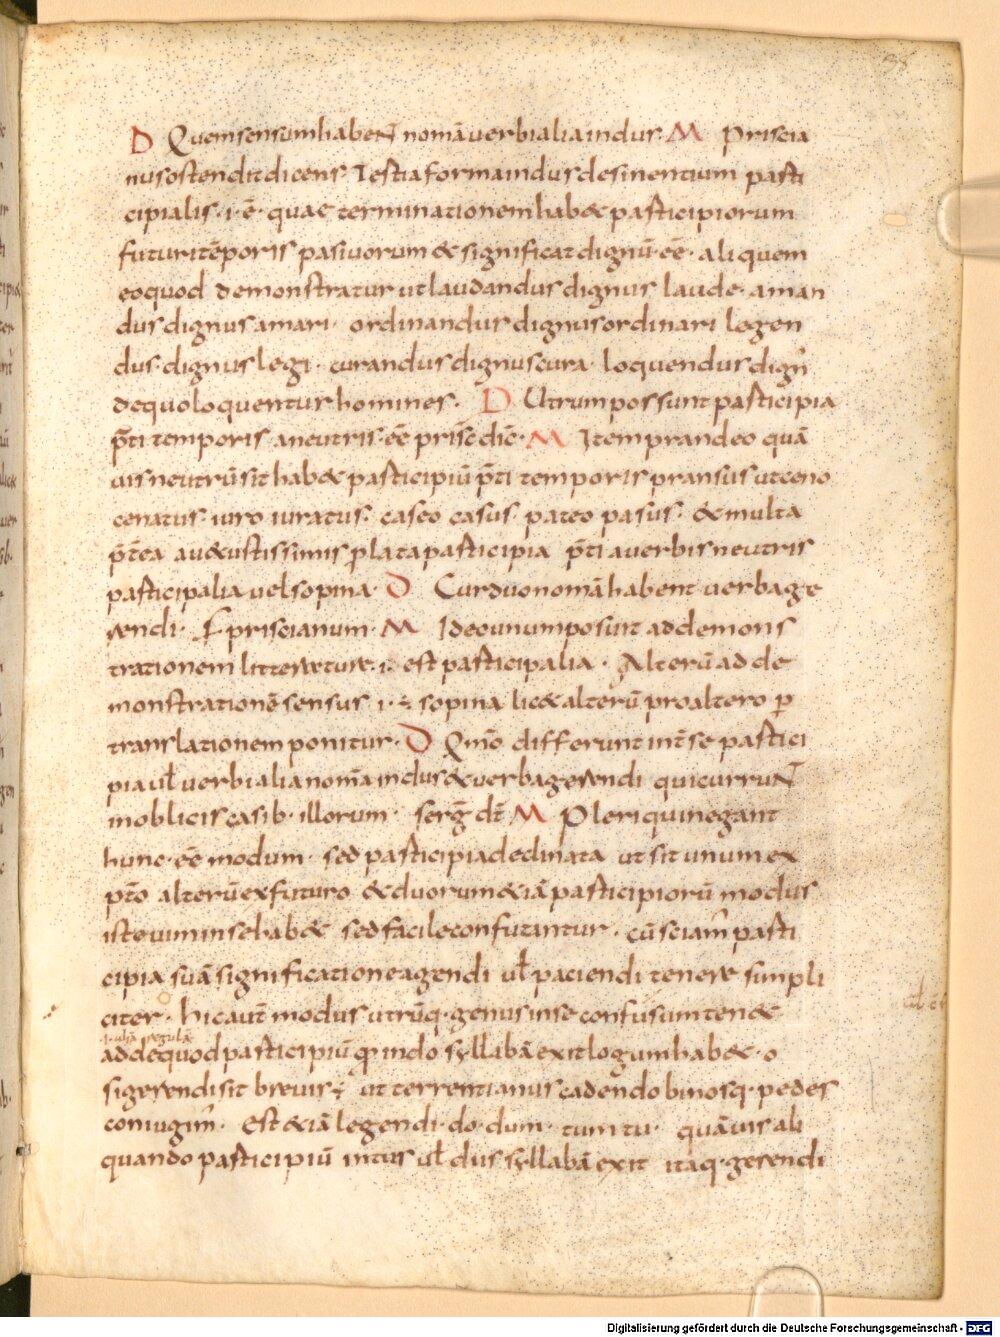 38
D Quem sensum habent nomā verbialia in dus. M Priscia
nus ostendit dicens Iestia forma in dus desinentium parti
cipialis · i · ē · quae terminationem hab& participiorum
futuri tēporis pasivorum & significat dignū · ēē · aliquem
eo quod demonstratur ut laudandus dignus laude · aman
dus dignus amari · ordinandus dignus ordinari legen
dus · dignus legi · curandus dignus cura · loquendus dign̄
de quo loquentur homines · D Utrum possunt participia
p̄ti temporis a neutris · ēē prisc̄ dic̄ · M Item prandeo quā
vis neutrū sit hab& participiū p̄ti temporis pransus ut ceno
cenatus · iuro iuratus · caseo casus · pateo pasus · & multa
p̄tea au&ustissimis plata participia p̄ti a verbis neutris
participalia vel sopina · D Cur duo nomā habent verba ge
rendi · S̄ priscianum · M Ideo unum posunt ad demons
trationem litteraturae · i · est participalia · Alterū ad de
monstrationē sensus · i · ÷ sopina lic& alterū pro altero p
translationem ponitur · D Qm̄o differunt int̄ se partici
pia ul̄ verbialia nomā in dus & verba gerendi qui currunt
in oblicis casib · illorum · serḡ dt̄ M Plerique negant
hunc · ēē modum · sed participia declinata ut sit unum ex
pt̄o alterū ex futuro & duorum &iā participiorū modus
iste vim in se hab& sed facile confutantur · cū sciam̄ parti
cipia suā significatione agendi ul̄ paciendi tenere simpli
citer · hic aut̄ modus utrūq · genus in se confusum ten&
· i · aliā regulā
ad de quod participiū q̄ in do syllabā exit logum hab& · o
si gerendi sit brevis ÷ ut terrentianus cadendo binosq · pedes
coniugim̄ · Est &iā legendi · do · dum · tum tu · quāvis ali
quando participiū in tus ul̄ dus syllabā exit itaq · gerendi
Digitalisierung gefördert durch die Deutsche Forschungsgemeinschaft - DFG